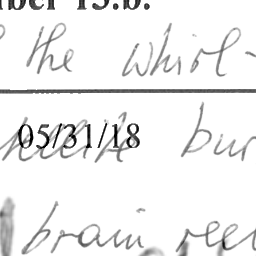 13.b.
the whirl-
05/31/18 bur
brain reel